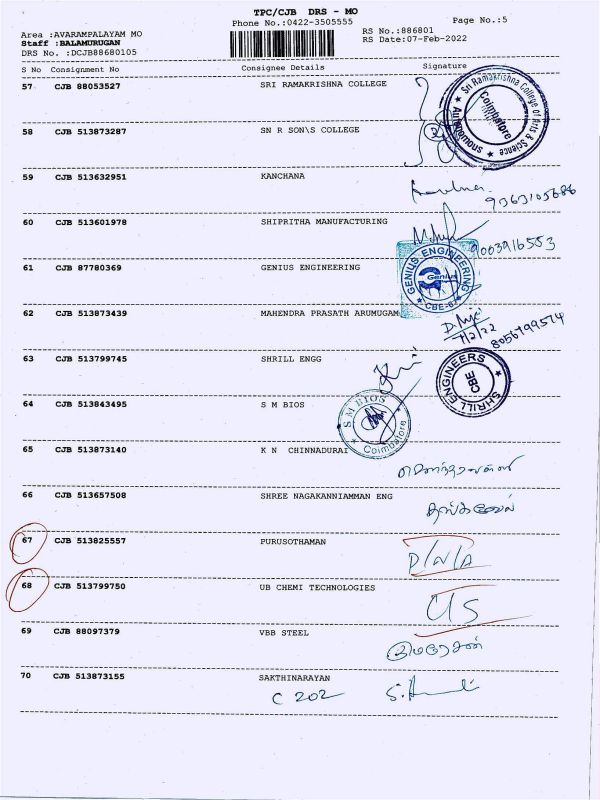 TPC/CJB DRS - MO
Phone No.:0422-3505555 Page No.:5
Area :AVARAMPALAYAM MO RS No.:886801
Staff :BALAMURUGAN RS Date:07-Feb-2022
DRS No. :DCJB88680105
S No Consignment No Consignee Details Signature
57 CJB 88053527 SRI RAMAKRISHNA COLLEGE
Sri Ramakrishna College of Arts & Science
Autonomous
Coimbatore
58 CJB 513873287 SN R SON\S COLLEGE
59 CJB 513632951 KANCHANA
9363105686
60 CJB 513601978 SHIPRITHA MANUFACTURING
9003916553
61 CJB 87780369 GENIUS ENGINEERING
GENIUS ENGINEERING
Genius
CBE-6
62 CJB 513873439 MAHENDRA PRASATH ARUMUGAM
7/2/22
8056799574
63 CJB 513799745 SHRILL ENGG
SHRILL ENGINEERS
CBE
64 CJB 513843495 S M BIOS
S M BIOS
Coimbatore
65 CJB 513873140 K N CHINNADURAI
66 CJB 513657508 SHREE NAGAKANNIAMMAN ENG
தங்கவேல்
67 CJB 513825557 PURUSOTHAMAN
D/N/A
68 CJB 513799750 UB CHEMI TECHNOLOGIES
C/S
69 CJB 88097379 VBB STEEL
குமரேசன்
70 CJB 513873155 SAKTHINARAYAN
C 202